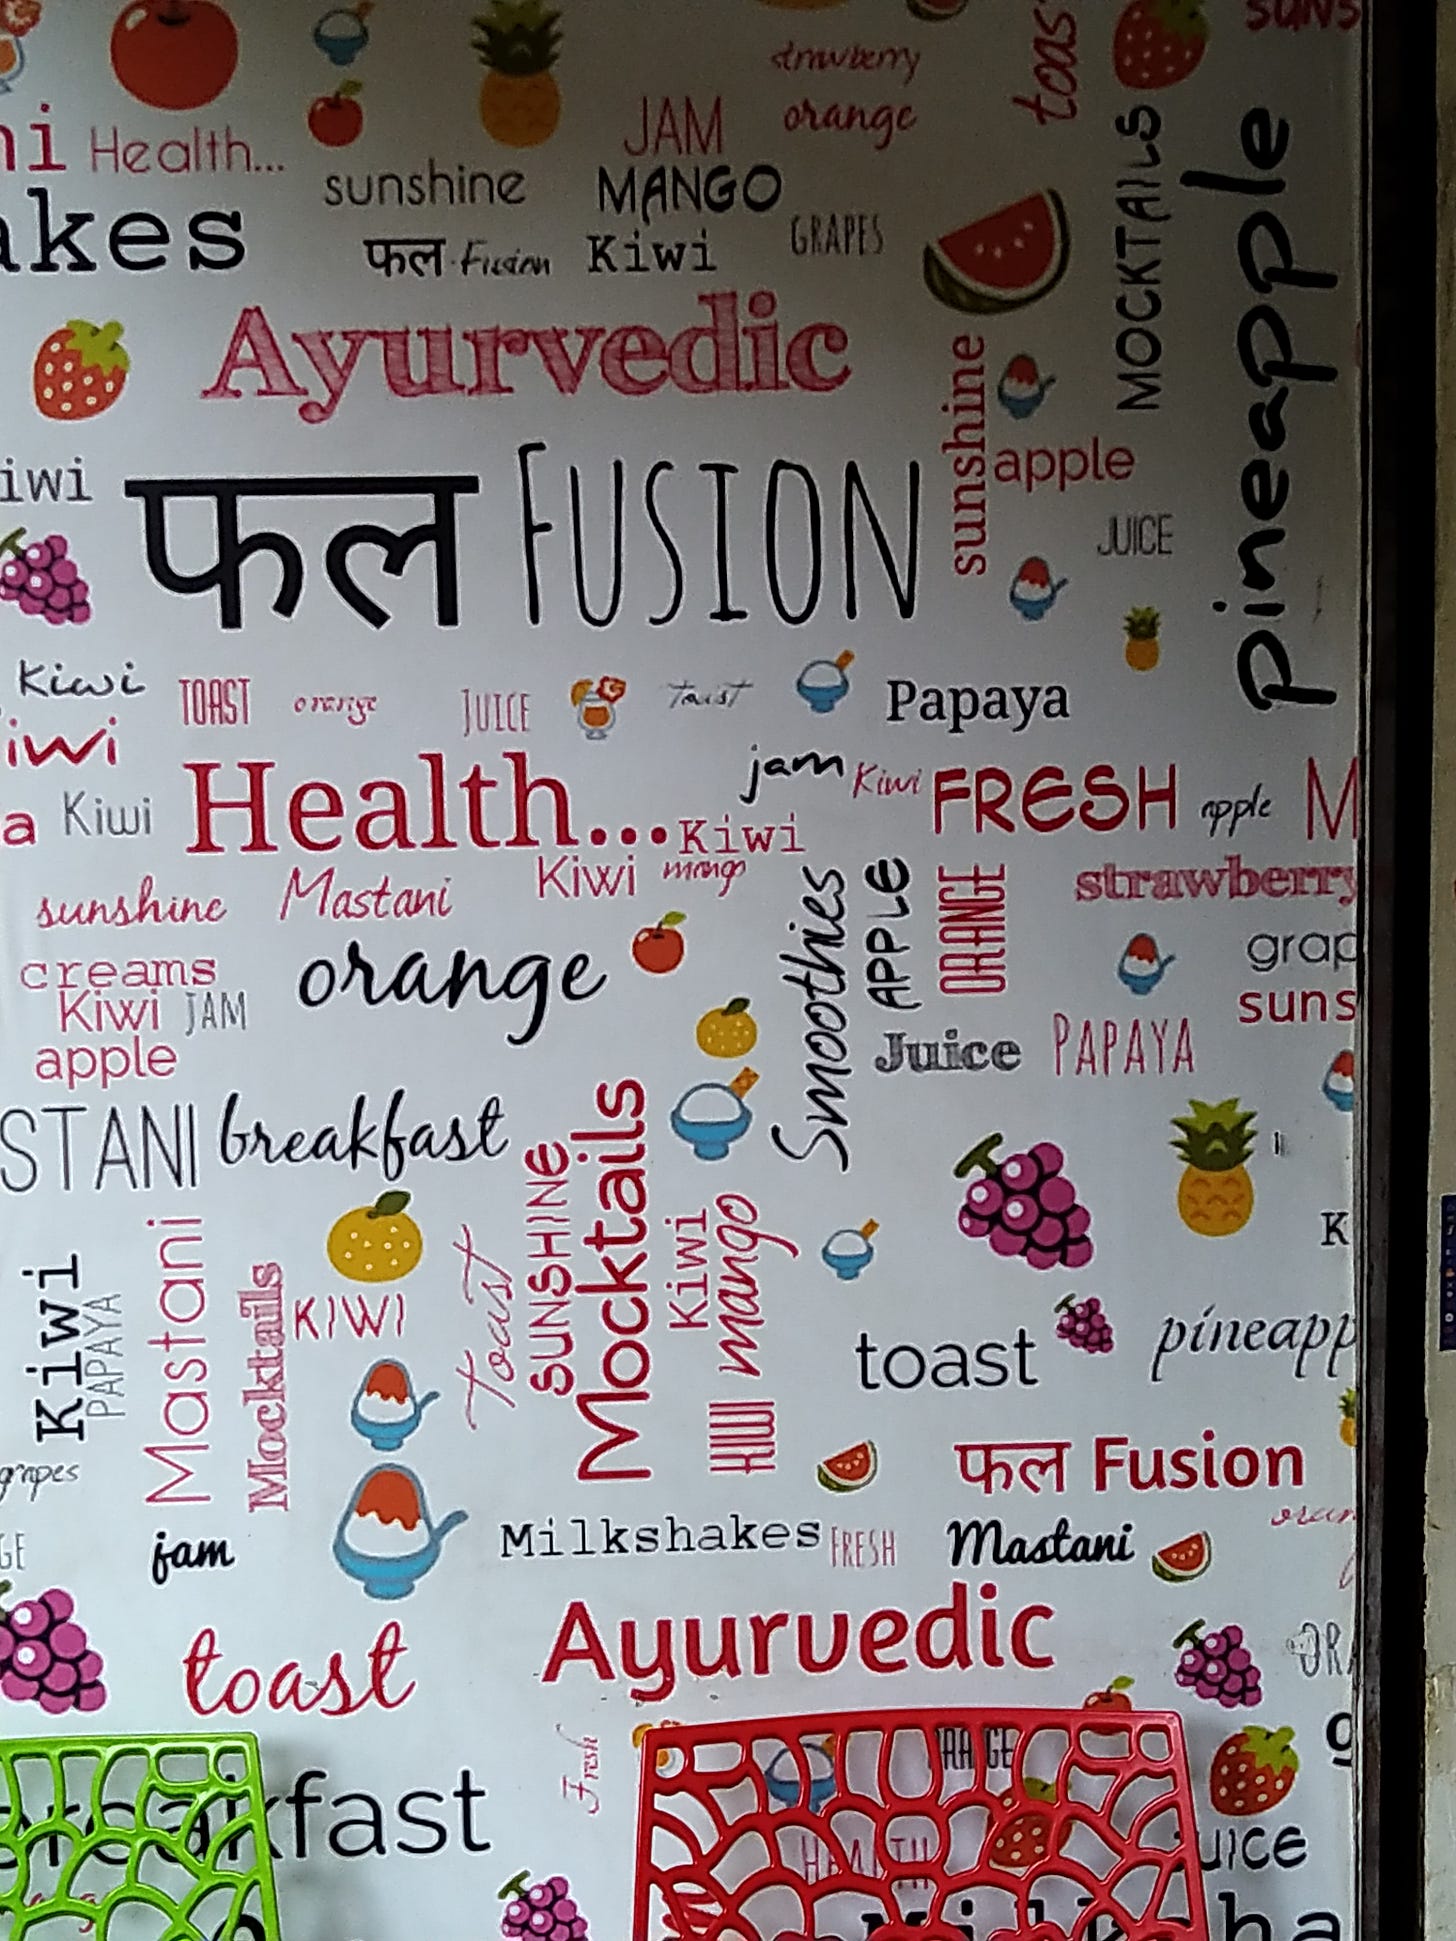 strawberry
SUNS
toas
JAM
orange
Health...
sunshine
MANGO
MOCKTAILS
pineapple
akes
फल Fusion
Kiwi
GRAPES
Ayurvedic
sunshine
apple
iwi
फल FUSION
JUICE
Kiwi
TOAST
orange
JUICE
Papaya
iwi
jam
Kiwi
FRESH
apple
M
a
Kiwi
Health...
Kiwi
Kiwi
mango
strawberry
sunshine
Mastani
Smoothies
APPLE
ORANGE
creams
orange
grap
Kiwi
JAM
suns
apple
Juice
PAPAYA
STANI
breakfast
SUNSHINE
Mocktails
Kiwi
mango
Kiwi
PAPAYA
Mastani
Mocktails
KIWI
toast
K
toast
pineapp
KIWI
grapes
फल Fusion
GE
jam
Milkshakes
FRESH
Mastani
toast
Ayurvedic
ORA
Fresh
breakfast
HEALTH
uice